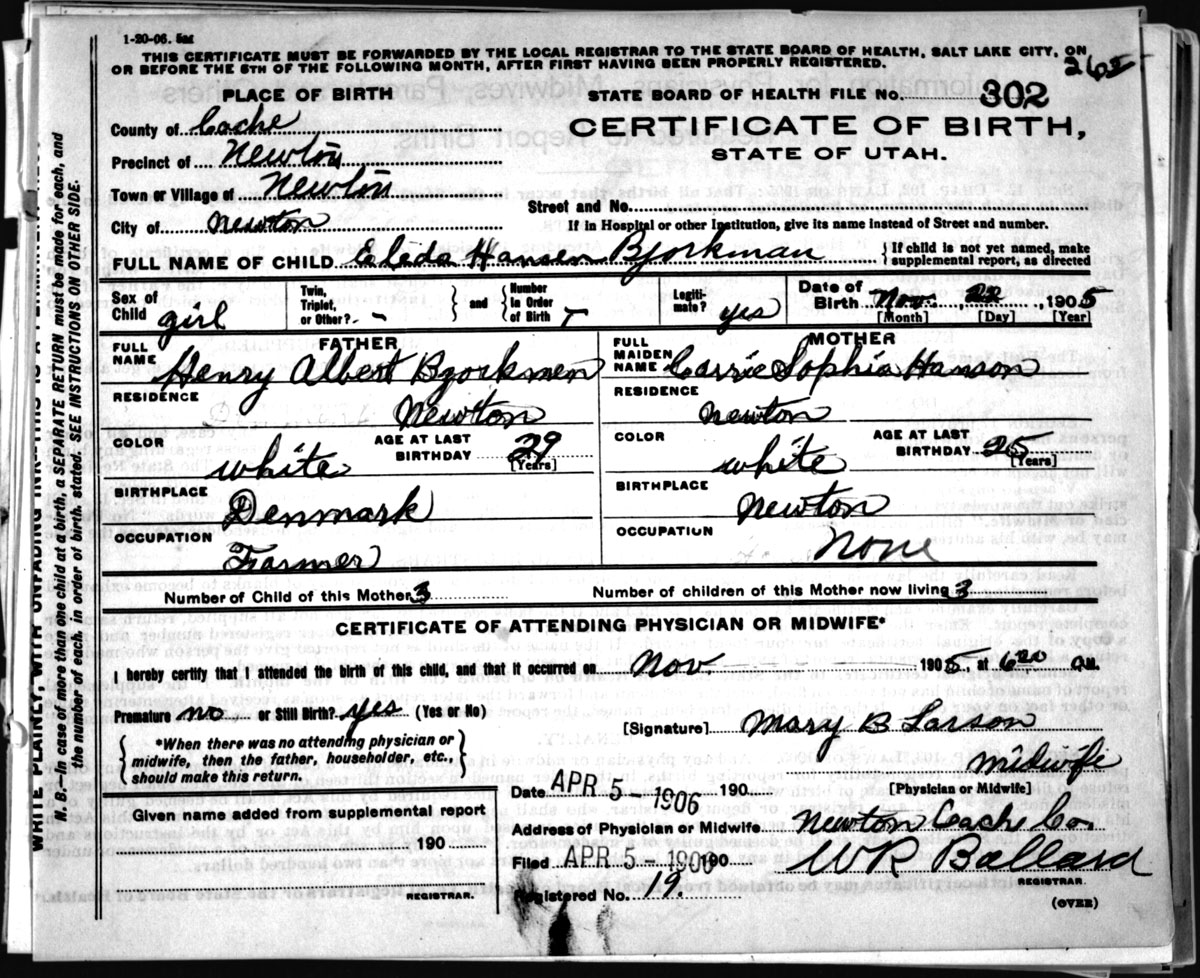 1-20-06. 5M
THIS CERTIFICATE MUST BE FORWARDED BY THE LOCAL REGISTRAR TO THE STATE BOARD OF HEALTH, SALT LAKE CITY, ON
OR BEFORE THE 5TH OF THE FOLLOWING MONTH, AFTER FIRST HAVING BEEN PROPERLY REGISTERED.
265
PLACE OF BIRTH
STATE BOARD OF HEALTH FILE NO. 302
County of Cache
CERTIFICATE OF BIRTH,
Precinct of Newton
STATE OF UTAH.
Town or Village of Newton
Street and No.
City of Newton
If in Hospital or other Institution, give its name instead of Street and number.
FULL NAME OF CHILD Eleda Hansen Bjorkman { If child is not yet named, make supplemental report, as directed
Sex of Child girl Twin, Triplet, or Other? - } and { Number in Order of Birth - Legitimate? yes Date of Birth Nov. 22, 1905
[Month] [Day] [Year]
FATHER
MOTHER
FULL NAME Henry Albert Bjorkmen
FULL MAIDEN NAME Carrie Sophia Hanson
RESIDENCE Newton
RESIDENCE Newton
COLOR white AGE AT LAST BIRTHDAY 29 [Years]
COLOR white AGE AT LAST BIRTHDAY 25 [Years]
BIRTHPLACE Denmark
BIRTHPLACE Newton
OCCUPATION Farmer
OCCUPATION None
Number of Child of this Mother 3
Number of children of this Mother now living 3
CERTIFICATE OF ATTENDING PHYSICIAN OR MIDWIFE*
I hereby certify that I attended the birth of this child, and that it occurred on Nov 1905, at 6 20 a.M.
Premature no or Still Birth? yes (Yes or No)
[Signature] Mary B Larson
{ *When there was no attending physician or
midwife, then the father, householder, etc.,
should make this return. }
Midwife
[Physician or Midwife]
Date APR 5 - 1906 190
Given name added from supplemental report
Address of Physician or Midwife Newton Cache Co.
190
Filed APR 5 - 1906 190 W R Ballard
REGISTRAR.
Registered No. 19.
REGISTRAR.
(OVER)
WRITE PLAINLY, WITH UNFADING INK—THIS IS A PERMANENT
N. B.—In case of more than one child at a birth, a SEPARATE RETURN must be made for each, and
the number of each, in order of birth, stated. SEE INSTRUCTIONS ON OTHER SIDE.